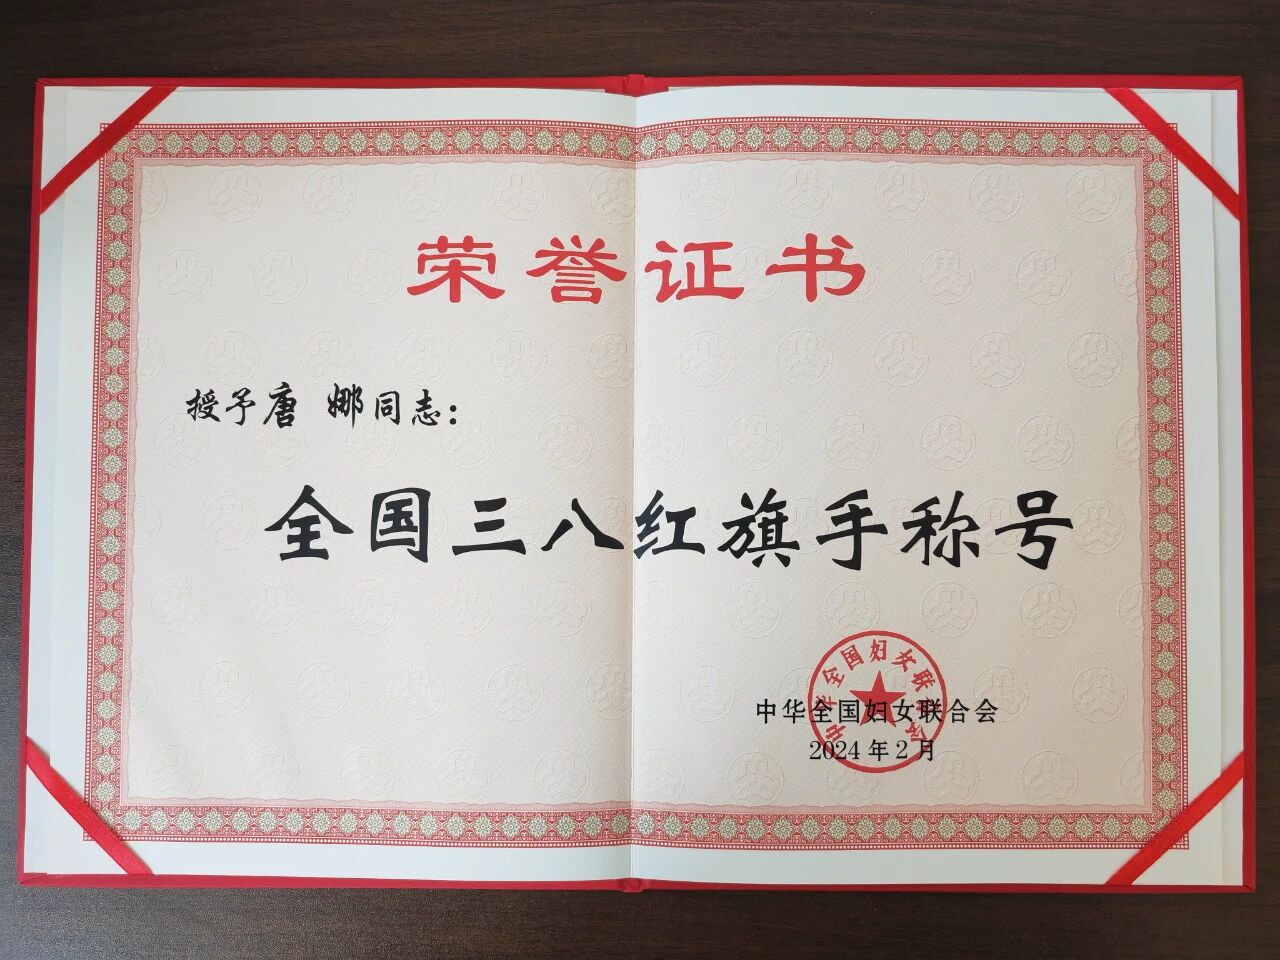 荣誉证书
授予唐 娜同志：
全国三八红旗手称号
中华全国妇女联合会
中华全国妇女联合会
2024年2月